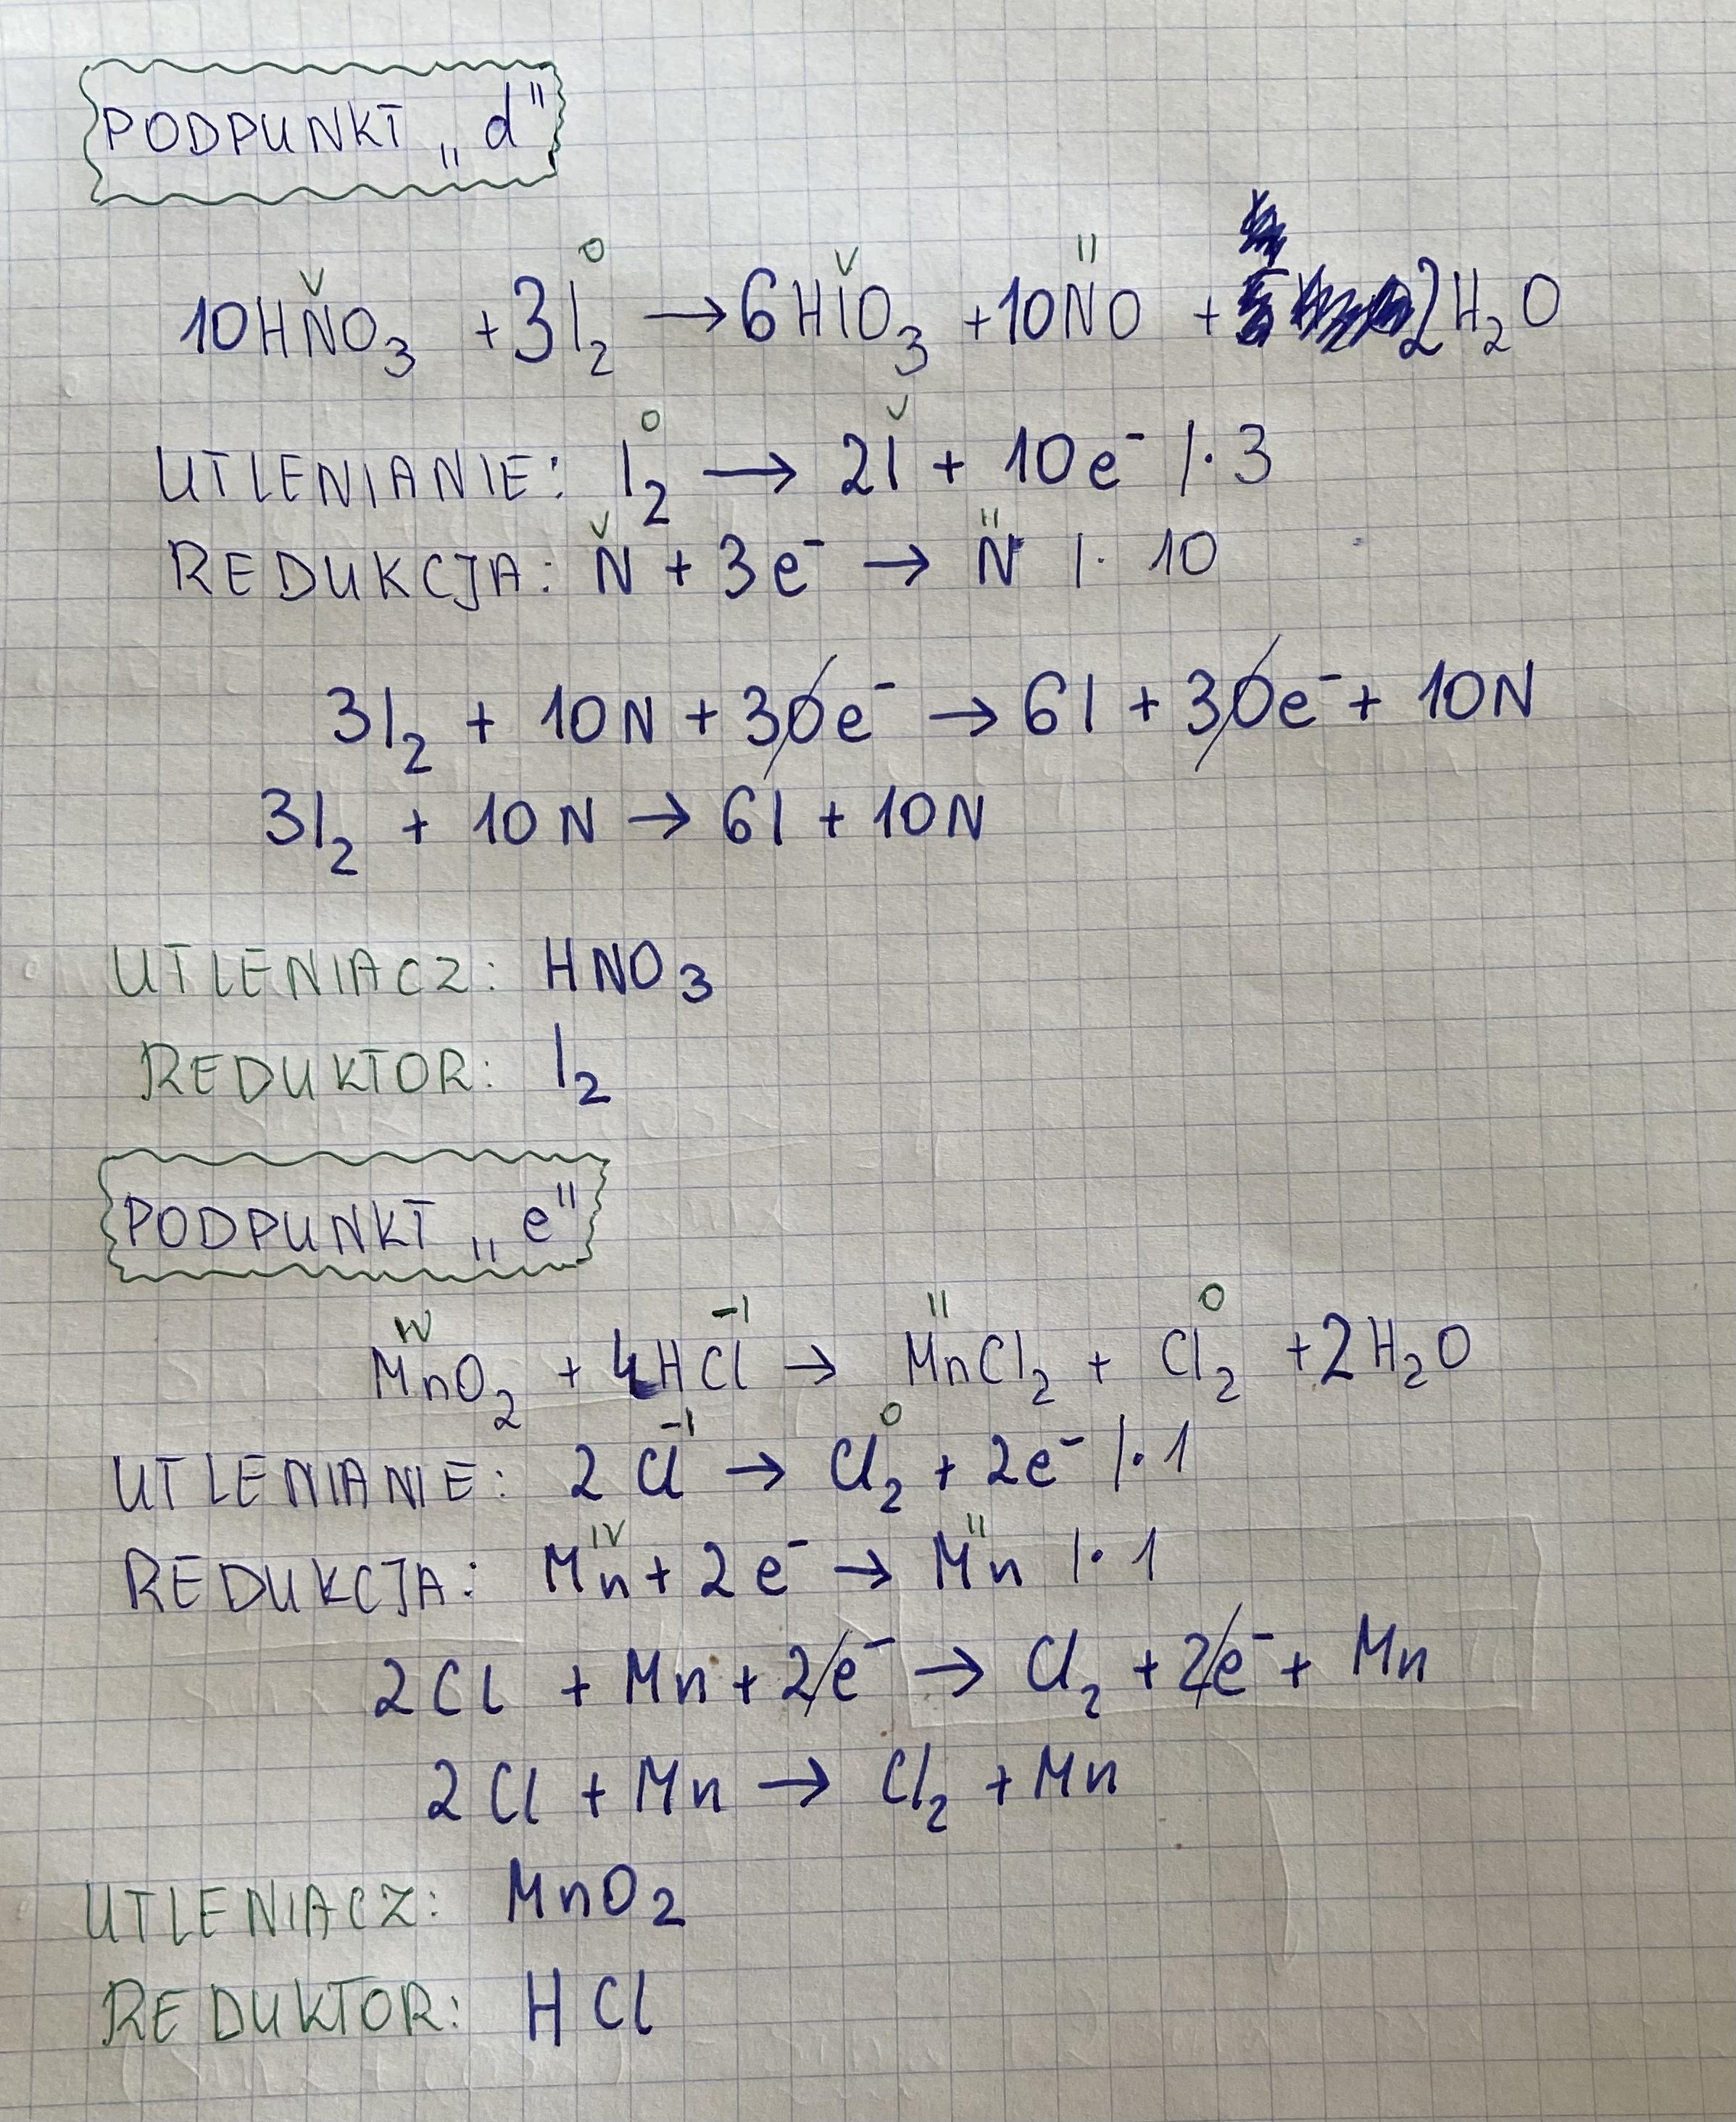 PODPUNKT „d"
V O V II
10HNO₃ + 3I₂ → 6HIO₃ + 10NO + 2H₂O
O V
UTLENIANIE: I₂ → 2I + 10e⁻ /·3
V II
REDUKCJA: N + 3e⁻ → N |· 10
3I₂ + 10N + 30e⁻ → 6I + 30e⁻ + 10N
3I₂ + 10N → 6I + 10N
UTLENIACZ: HNO₃
REDUKTOR: I₂
PODPUNKT „e"
IV -I II O
MnO₂ + 4HCl → MnCl₂ + Cl₂ + 2H₂O
-I O
UTLENIANIE: 2Cl → Cl₂ + 2e⁻ /·1
IV II
REDUKCJA: Mn + 2e⁻ → Mn |·1
2Cl + Mn + 2e⁻ → Cl₂ + 2e⁻ + Mn
2Cl + Mn → Cl₂ + Mn
UTLENIACZ: MnO₂
REDUKTOR: HCl